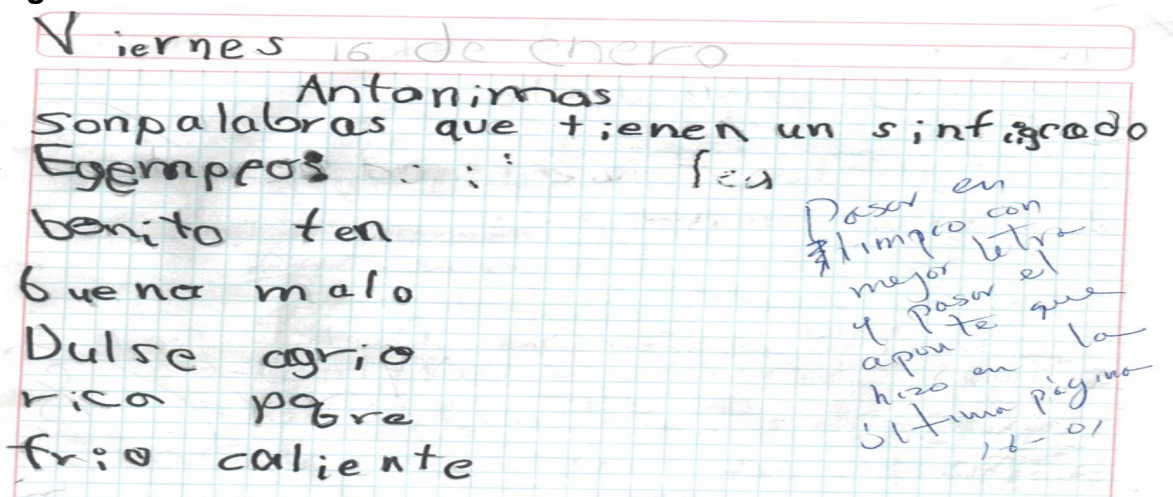 Viernes 16 de enero
Antanimas
Sonpalabras que tienen un sinfigrado
Egempeos : : feu
benito ten
buena malo
Dulse agrio
rica pobre
frio caliente
Pasar en
limpio con
mejor letra
y pasar el
apunte que
hizo en la
última página
16-01